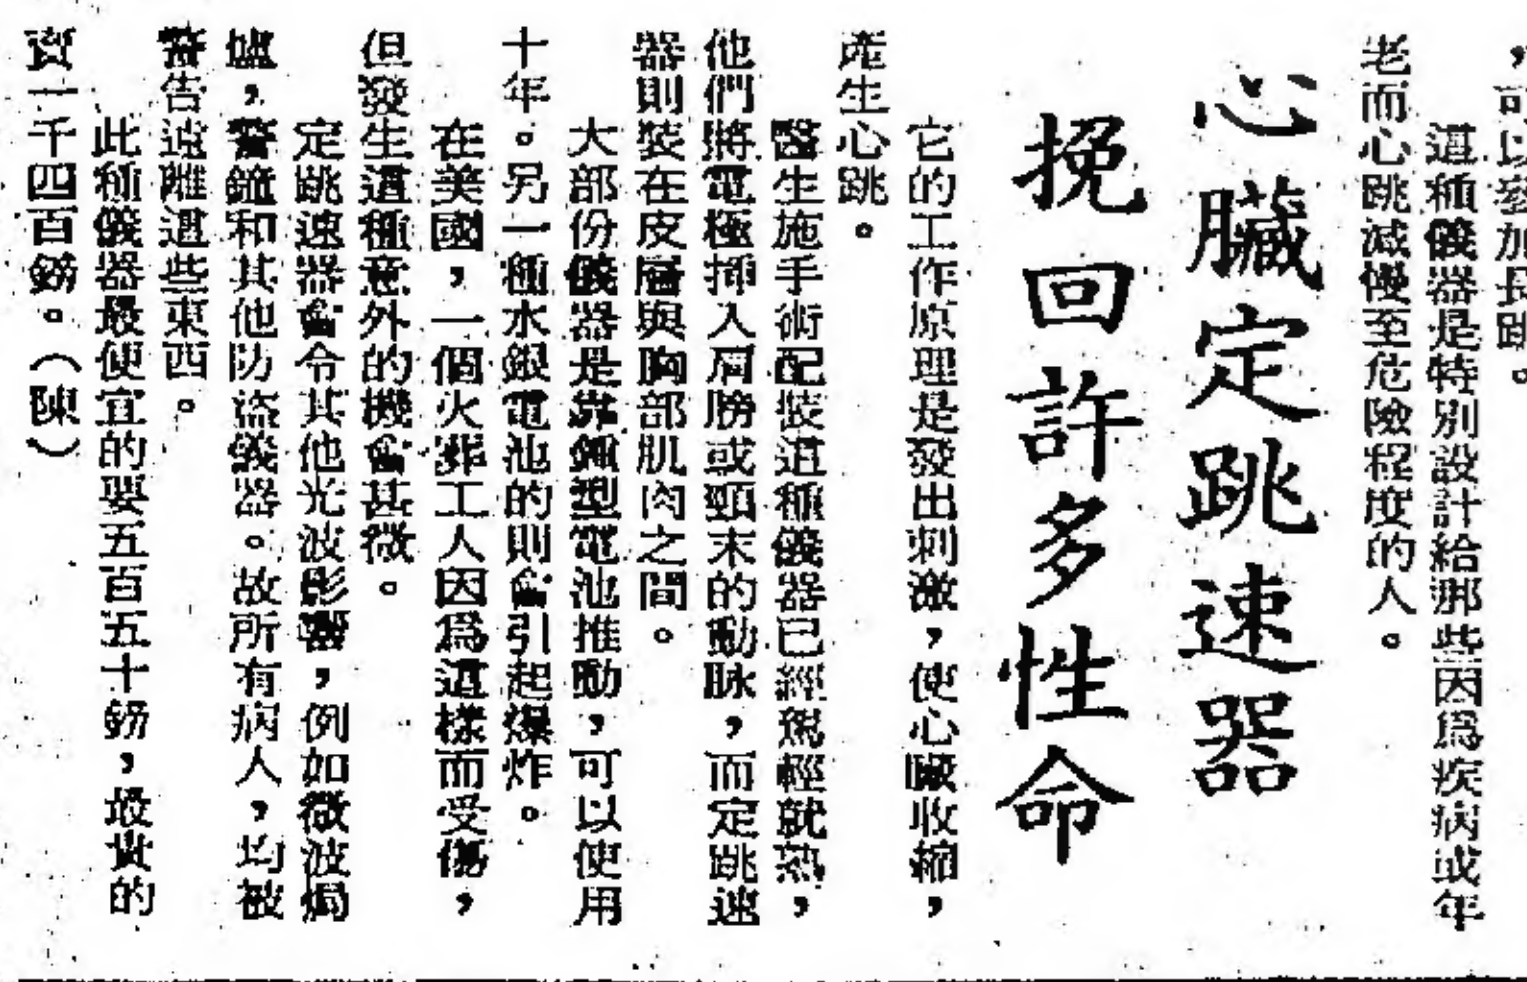 ，可以參加長跑。
這種儀器是特別設計給那些因爲疾病或年
老而心跳減慢至危險程度的人。
心臟定跳速器
挽回許多性命
它的工作原理是發出刺激，使心臟收縮，
產生心跳。
醫生施手術配裝這種儀器已經駕輕就熟，
他們將電極揷入肩膀或頸末的動脉，而定跳速
器則裝在皮層與胸部肌肉之間。
大部份儀器是靠鋰型電池推動，可以使用
十年。另一種水銀電池的則會引起爆炸。
在美國，一個火葬工人因爲這樣而受傷，
但發生這種意外的機會甚微。
定跳速器會令其他光波影響，例如微波焗
爐，警鐘和其他防盜儀器。故所有病人，均被
警告遠離這些東西。
此種儀器最便宜的要五百五十鎊，最貴的
賣一千四百鎊。（陳）